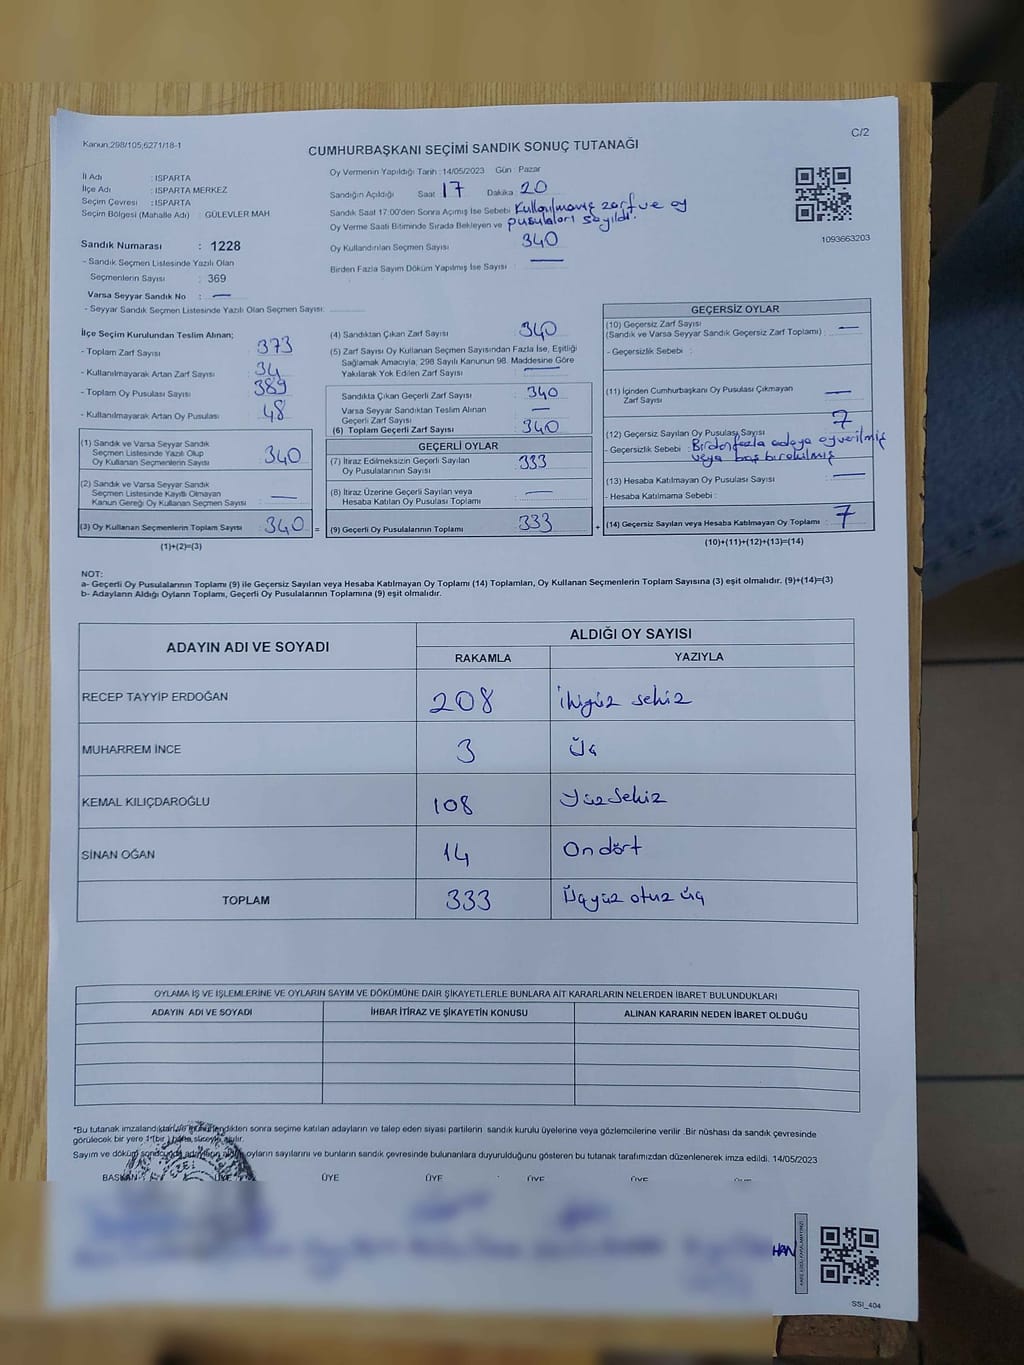 Kanun,298/105,6271/18-1
C/2
CUMHURBAŞKANI SEÇİMİ SANDIK SONUÇ TUTANAĞI
İl Adı : ISPARTA
İlçe Adı : ISPARTA MERKEZ
Seçim Çevresi : ISPARTA
Seçim Bölgesi (Mahalle Adı) : GÜLEVLER MAH
Sandık Numarası : 1228
- Sandık Seçmen Listesinde Yazılı Olan
Seçmenlerin Sayısı : 369
Varsa Seyyar Sandık No : —
- Seyyar Sandık Seçmen Listesinde Yazılı Olan Seçmen Sayısı:
Oy Vermenin Yapıldığı Tarih :14/05/2023 Gün : Pazar
Sandığın Açıldığı Saat 17 Dakika 20
Sandık Saat 17:00'den Sonra Açımış İse Sebebi Kullanılmamış zarf ve oy
Oy Verme Saati Bitiminde Sırada Bekleyen ve pusulaları sayıldı.
Oy Kullandırılan Seçmen Sayısı 340
Birden Fazla Sayım Döküm Yapılmış İse Sayısı : —
1093663203
İlçe Seçim Kurulundan Teslim Alınan;
- Toplam Zarf Sayısı 373
- Kullanılmayarak Artan Zarf Sayısı 34
- Toplam Oy Pusulası Sayısı 389
- Kullanılmayarak Artan Oy Pusulası 48
(1) Sandık ve Varsa Seyyar Sandık
Seçmen Listesinde Yazılı Olup
Oy Kullanan Seçmenlerin Sayısı 340
(2) Sandık ve Varsa Seyyar Sandık
Seçmen Listesinde Kayıtlı Olmayan
Kanun Gereği Oy Kullanan Seçmen Sayısı —
(3) Oy Kullanan Seçmenlerin Toplam Sayısı 340 =
(1)+(2)=(3)
(4) Sandıktan Çıkan Zarf Sayısı : 340
(5) Zarf Sayısı Oy Kullanan Seçmen Sayısından Fazla İse, Eşitliği
Sağlamak Amacıyla; 298 Sayılı Kanunun 98. Maddesine Göre
Yakılarak Yok Edilen Zarf Sayısı : —
Sandıkta Çıkan Geçerli Zarf Sayısı : 340
Varsa Seyyar Sandıktan Teslim Alınan
Geçerli Zarf Sayısı : —
(6) Toplam Geçerli Zarf Sayısı : 340
GEÇERLİ OYLAR
(7) İtiraz Edilmeksizin Geçerli Sayılan
Oy Pusulalarının Sayısı : 333
(8) İtiraz Üzerine Geçerli Sayılan veya
Hesaba Katılan Oy Pusulası Toplamı : —
(9) Geçerli Oy Pusulalarının Toplamı : 333 +
GEÇERSİZ OYLAR
(10) Geçersiz Zarf Sayısı
(Sandık ve Varsa Seyyar Sandık Geçersiz Zarf Toplamı) : —
- Geçersizlik Sebebi :
(11) İçinden Cumhurbaşkanı Oy Pusulası Çıkmayan
Zarf Sayısı : —
(12) Geçersiz Sayılan Oy Pusulası Sayısı : 7
- Geçersizlik Sebebi : Birden fazla adaya oy verilmiş
veya boş bırakılmış
(13) Hesaba Katılmayan Oy Pusulası Sayısı : —
- Hesaba Katılmama Sebebi :
(14) Geçersiz Sayılan veya Hesaba Katılmayan Oy Toplamı : 7
(10)+(11)+(12)+(13)=(14)
NOT:
a- Geçerli Oy Pusulalarının Toplamı (9) ile Geçersiz Sayılan veya Hesaba Katılmayan Oy Toplamı (14) Toplamları, Oy Kullanan Seçmenlerin Toplam Sayısına (3) eşit olmalıdır. (9)+(14)=(3)
b- Adayların Aldığı Oyların Toplamı, Geçerli Oy Pusulalarının Toplamına (9) eşit olmalıdır.
ADAYIN ADI VE SOYADI ALDIĞI OY SAYISI
RAKAMLA YAZIYLA
RECEP TAYYİP ERDOĞAN 208 İkiyüz sekiz
MUHARREM İNCE 3 Üç
KEMAL KILIÇDAROĞLU 108 Yüz Sekiz
SİNAN OĞAN 14 On dört
TOPLAM 333 Üçyüz otuz üç
OYLAMA İŞ VE İŞLEMLERİNE VE OYLARIN SAYIM VE DÖKÜMÜNE DAİR ŞİKAYETLERLE BUNLARA AİT KARARLARIN NELERDEN İBARET BULUNDUKLARI
ADAYIN ADI VE SOYADI İHBAR İTİRAZ VE ŞİKAYETİN KONUSU ALINAN KARARIN NEDEN İBARET OLDUĞU
*Bu tutanak imzalandıktan ve mühürlendikten sonra seçime katılan adayların ve talep eden siyasi partilerin sandık kurulu üyelerine veya gözlemcilerine verilir .Bir nüshası da sandık çevresinde
görülecek bir yere 1 (bir) hafta süreyle asılır.
Sayım ve döküm sonucunda adayların aldığı oyların sayılarını ve bunların sandık çevresinde bulunanlara duyurulduğunu gösteren bu tutanak tarafımızdan düzenlenerek imza edildi. 14/05/2023
BAŞKAN ÜYE ÜYE ÜYE ÜYE ÜYE ÜYE
HAN
SSI_404